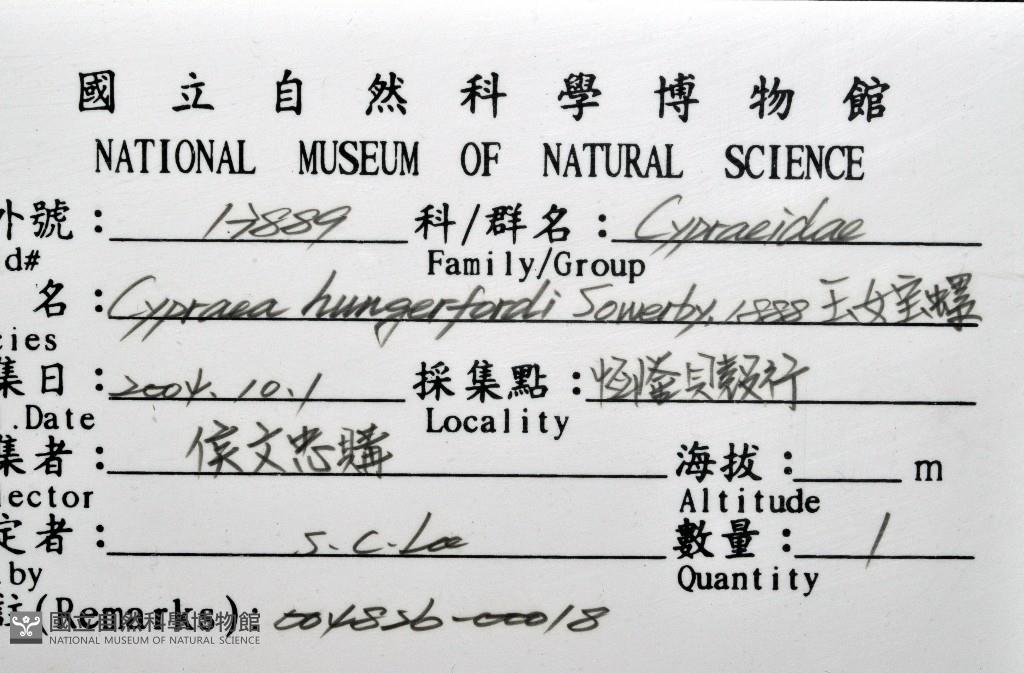 國立自然科學博物館
NATIONAL MUSEUM OF NATURAL SCIENCE
外號： 17889 科/群名： Cypraeidae
d# Family/Group
名： Cypraea hungerfordi Sowerby, 1888 玉女寶螺
cies
集日： 2004.10.1 採集點： 恆燈貝殼行
.Date Locality
集者： 侯文忠購 海拔： m
lector Altitude
定者： S. C. Lee 數量： 1
.by Quantity
註(Remarks): 004826-00018
國立自然科學博物館
NATIONAL MUSEUM OF NATURAL SCIENCE